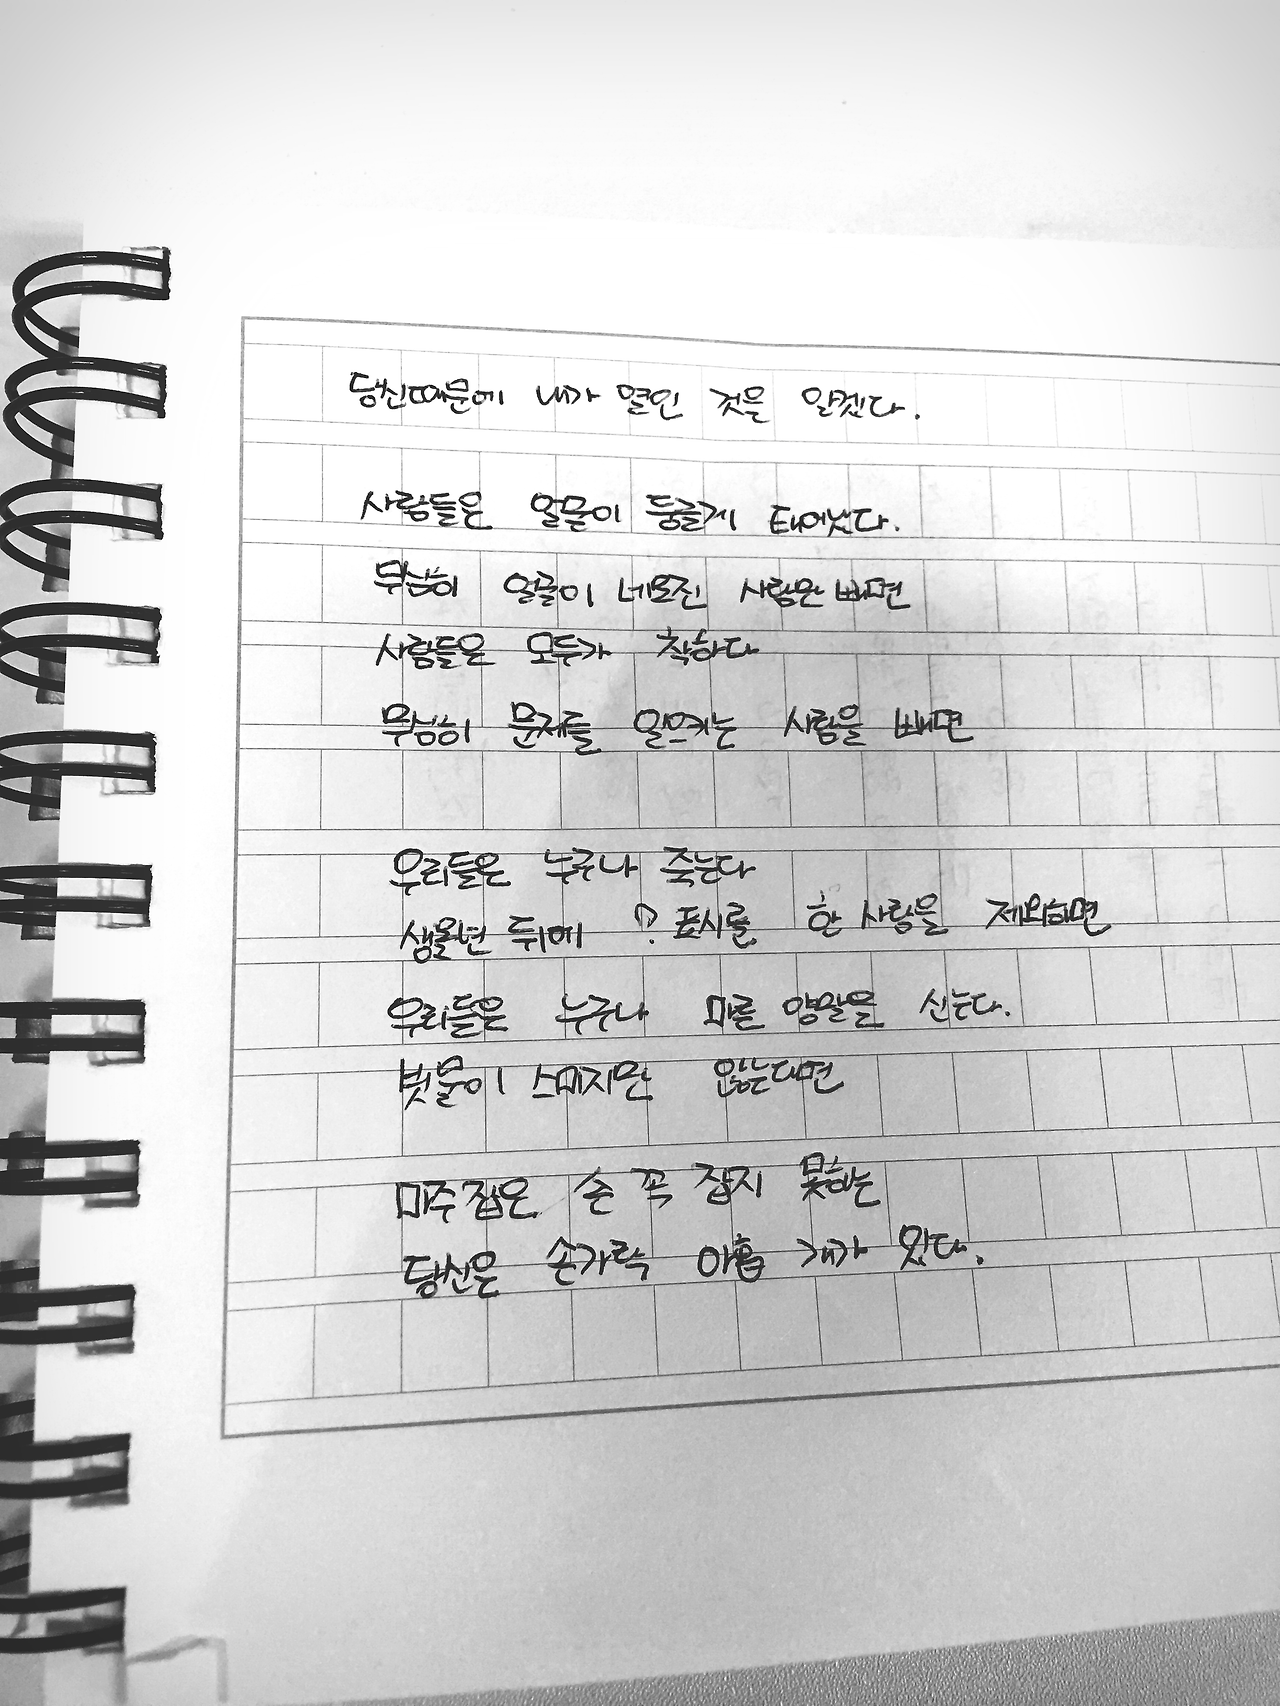 당신때문에 내가 열인 것을 알겠다.
사람들은 얼굴이 둥글게 태어났다.
유난히 얼굴이 네모진 사람만 빼면
사람들은 모두가 착하다
유난히 문제를 일으키는 사람을 빼면
우리들은 누구나 죽는다
생몰년 뒤에 ? 표시를 한 사람을 제외하면
우리들은 누구나 마른 양말을 신는다.
빗물이 스미지만 않는다면
마주 잡은 손 꼭 잡지 못하는
당신은 손가락 아홉 개가 있다.